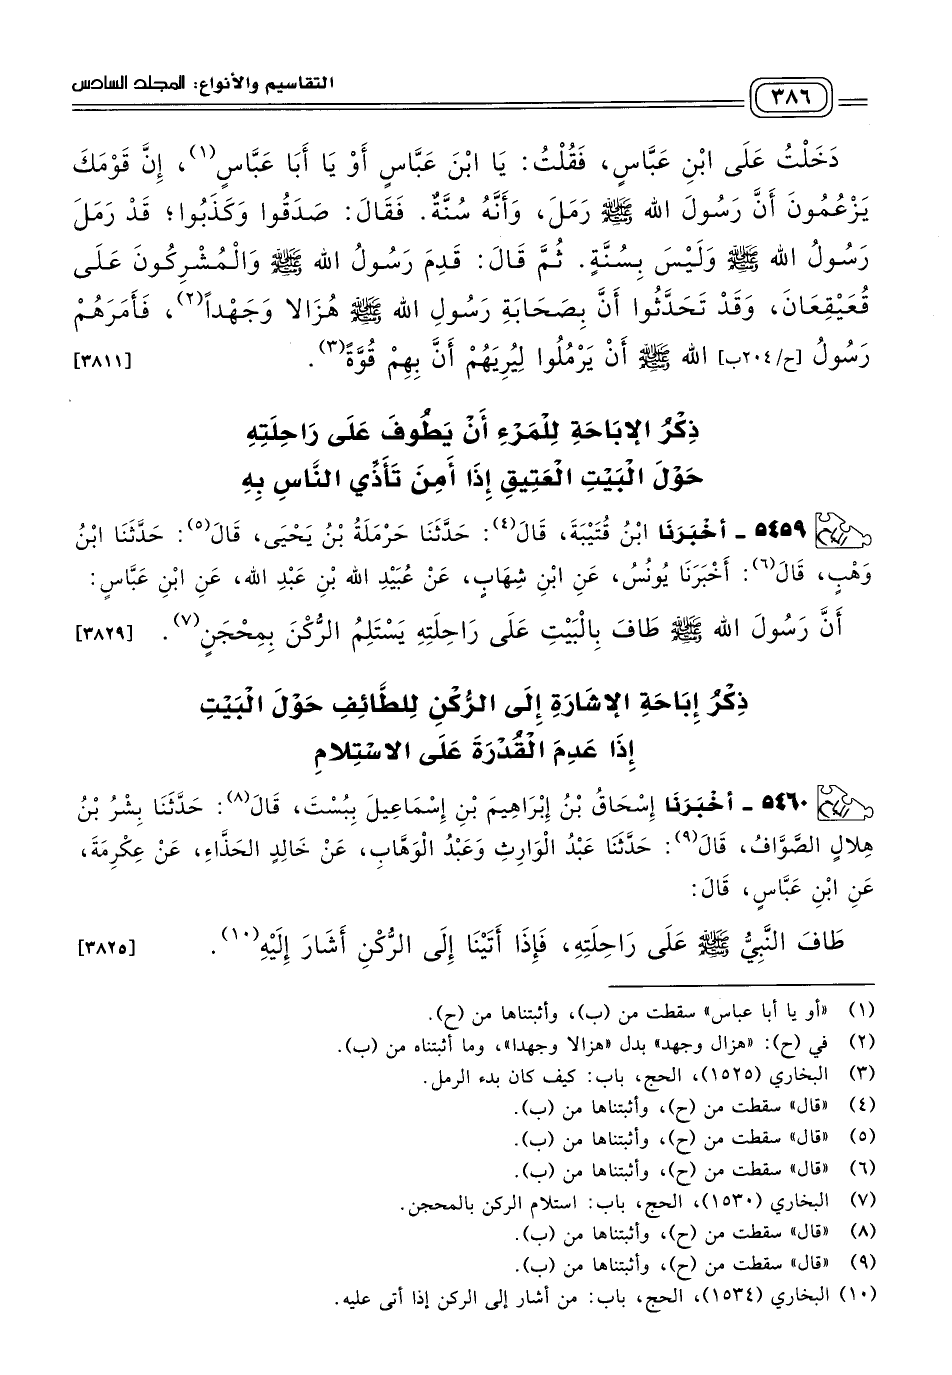 ٣٨٦
التقاسيم والأنواع: المجلد السادس
دَخَلْتُ عَلَى ابْنِ عَبَّاسٍ، فَقُلْتُ: يَا ابْنَ عَبَّاسٍ أَوْ يَا أَبَا عَبَّاسٍ(١)، إِنَّ قَوْمَكَ
يَزْعُمُونَ أَنَّ رَسُولَ الله ﷺ رَمَلَ، وَأَنَّهُ سُنَّةٌ. فَقَالَ: صَدَقُوا وَكَذَبُوا؛ قَدْ رَمَلَ
رَسُولُ الله ﷺ وَلَيْسَ بِسُنَّةٍ. ثُمَّ قَالَ: قَدِمَ رَسُولُ الله ﷺ وَالْمُشْرِكُونَ عَلَى
قُعَيْقِعَانَ، وَقَدْ تَحَدَّثُوا أَنَّ بِصَحَابَةِ رَسُولِ الله ﷺ هُزَالا وَجَهْداً(٢)، فَأَمَرَهُمْ
رَسُولُ [ح/٢٠٤ب] الله ﷺ أَنْ يَرْمُلُوا لِيُرِيَهُمْ أَنَّ بِهِمْ قُوَّةً(٣). [٣٨١١]
ذِكْرُ الإبَاحَةِ لِلْمَرْءِ أَنْ يَطُوفَ عَلَى رَاحِلَتِهِ
حَوْلَ الْبَيْتِ الْعَتِيقِ إِذَا أَمِنَ تَأَذِّي النَّاسِ بِهِ
٥٤٥٩ - أَخْبَرَنَا ابْنُ قُتَيْبَةَ، قَالَ(٤): حَدَّثَنَا حَرْمَلَةُ بْنُ يَحْيَى، قَالَ(٥): حَدَّثَنَا ابْنُ
وَهْبٍ، قَالَ(٦): أَخْبَرَنَا يُونُسُ، عَنِ ابْنِ شِهَابٍ، عَنْ عُبَيْدِ الله بْنِ عَبْدِ الله، عَنِ ابْنِ عَبَّاسٍ:
أَنَّ رَسُولَ الله ﷺ طَافَ بِالْبَيْتِ عَلَى رَاحِلَتِهِ يَسْتَلِمُ الرُّكْنَ بِمِحْجَنٍ(٧). [٣٨٢٩]
ذِكْرُ إِبَاحَةِ الإشَارَةِ إِلَى الرُّكْنِ لِلطَّائِفِ حَوْلَ الْبَيْتِ
إِذَا عَدِمَ الْقُدْرَةَ عَلَى الاسْتِلامِ
٥٤٦٠ - أَخْبَرَنَا إِسْحَاقُ بْنُ إِبْرَاهِيمَ بْنِ إِسْمَاعِيلَ بِبُسْتَ، قَالَ(٨): حَدَّثَنَا بِشْرُ بْنُ
هِلالٍ الصَّوَّافُ، قَالَ(٩): حَدَّثَنَا عَبْدُ الْوَارِثِ وَعَبْدُ الْوَهَّابِ، عَنْ خَالِدٍ الحَذَّاءِ، عَنْ عِكْرِمَةَ،
عَنِ ابْنِ عَبَّاسٍ، قَالَ:
طَافَ النَّبِيُّ ﷺ عَلَى رَاحِلَتِهِ، فَإِذَا أَتَيْنَا إِلَى الرُّكْنِ أَشَارَ إِلَيْهِ(١٠). [٣٨٢٥]
(١) «أو يا أبا عباس» سقطت من (ب)، وأثبتناها من (ح).
(٢) في (ح): «هزال وجهد» بدل «هزالا وجهدا»، وما أثبتناه من (ب).
(٣) البخاري (١٥٢٥)، الحج، باب: كيف كان بدء الرمل.
(٤) «قال» سقطت من (ح)، وأثبتناها من (ب).
(٥) «قال» سقطت من (ح)، وأثبتناها من (ب).
(٦) «قال» سقطت من (ح)، وأثبتناها من (ب).
(٧) البخاري (١٥٣٠)، الحج، باب: استلام الركن بالمحجن.
(٨) «قال» سقطت من (ح)، وأثبتناها من (ب).
(٩) «قال» سقطت من (ح)، وأثبتناها من (ب).
(١٠) البخاري (١٥٣٤)، الحج، باب: من أشار إلى الركن إذا أتى عليه.